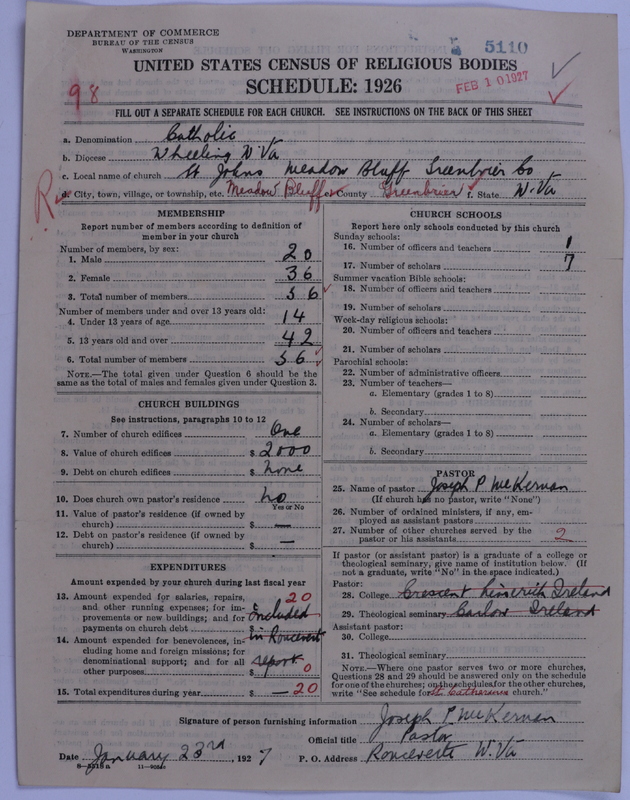 DEPARTMENT OF COMMERCE
BUREAU OF THE CENSUS
WASHINGTON
5110
UNITED STATES CENSUS OF RELIGIOUS BODIES
SCHEDULE: 1926
FEB 10 1927
98
FILL OUT A SEPARATE SCHEDULE FOR EACH CHURCH. SEE INSTRUCTIONS ON THE BACK OF THIS SHEET
a. Denomination Catholic
b. Diocese Wheeling W. Va
c. Local name of church St Johns Meadow Bluff Greenbrier Co
d. City, town, village, or township, etc. Meadow Bluff e. County Greenbrier f. State W. Va
MEMBERSHIP
Report number of members according to definition of member in your church
Number of members, by sex:
1. Male 20
2. Female 36
3. Total number of members 56
Number of members under and over 13 years old:
4. Under 13 years of age 14
5. 13 years old and over 42
6. Total number of members 56
NOTE.—The total given under Question 6 should be the
same as the total of males and females given under Question 3.
CHURCH BUILDINGS
See instructions, paragraphs 10 to 12
7. Number of church edifices One
8. Value of church edifices $ 2000
9. Debt on church edifices $ none
10. Does church own pastor's residence no
Yes or No
11. Value of pastor's residence (if owned by
church) $ —
12. Debt on pastor's residence (if owned by
church) $ —
EXPENDITURES
Amount expended by your church during last fiscal year
13. Amount expended for salaries, repairs, 20
and other running expenses; for im-
provements or new buildings; and for included
payments on church debt $
14. Amount expended for benevolences, in- in Ronceverte
cluding home and foreign missions; for
denominational support; and for all report
other purposes $ 0
15. Total expenditures during year $ — 20
CHURCH SCHOOLS
Report here only schools conducted by this church
Sunday schools:
16. Number of officers and teachers 1
17. Number of scholars 7
Summer vacation Bible schools:
18. Number of officers and teachers
19. Number of scholars
Week-day religious schools:
20. Number of officers and teachers
21. Number of scholars
Parochial schools:
22. Number of administrative officers
23. Number of teachers—
a. Elementary (grades 1 to 8)
b. Secondary
24. Number of scholars—
a. Elementary (grades 1 to 8)
b. Secondary
PASTOR
25. Name of pastor Joseph P McKernan
(If church has no pastor, write "None")
26. Number of ordained ministers, if any, em-
ployed as assistant pastors
27. Number of other churches served by the
pastor or his assistants 2
If pastor (or assistant pastor) is a graduate of a college or
theological seminary, give name of institution below. (If
not a graduate, write "No" in the space indicated.)
Pastor:
28. College Crescent Limerick Ireland
29. Theological seminary Carlow Ireland
Assistant pastor:
30. College
31. Theological seminary
NOTE.—Where one pastor serves two or more churches,
Questions 28 and 29 should be answered only on the schedule
for one of the churches; on the schedules for the other churches,
write "See schedule for St. Catherines church."
Signature of person furnishing information Joseph P McKernan
Official title Pastor
Date January 23rd, 1927 P. O. Address Ronceverte W. Va